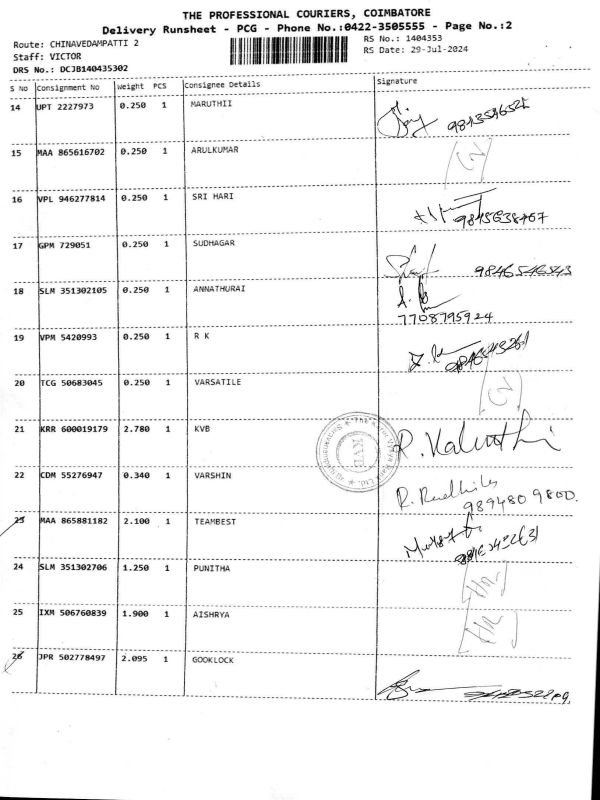 THE PROFESSIONAL COURIERS, COIMBATORE
Delivery Runsheet - PCG - Phone No.:0422-3505555 - Page No.:2
Route: CHINAVEDAMPATTI 2
RS No.: 1404353
Staff: VICTOR
RS Date: 29-Jul-2024
DRS No.: DCJB140435302
S No Consignment No Weight PCS Consignee Details Signature
14 UPT 2227973 0.250 1 MARUTHII
15 MAA 865616702 0.250 1 ARULKUMAR
16 VPL 946277814 0.250 1 SRI HARI
17 GPM 729051 0.250 1 SUDHAGAR
18 SLM 351302105 0.250 1 ANNATHURAI
7708795924
19 VPM 5420993 0.250 1 R K
20 TCG 50683045 0.250 1 VARSATILE
21 KRR 600019179 2.780 1 KVB
KVB
22 CDM 55276947 0.340 1 VARSHIN
9894809800.
23 MAA 865881182 2.100 1 TEAMBEST
24 SLM 351302706 1.250 1 PUNITHA
25 IXM 506760839 1.900 1 AISHRYA
26 JPR 502778497 2.095 1 GOOKLOCK